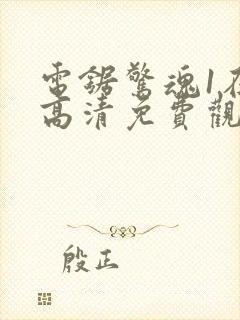 電鋸驚魂1在
高清免費觀
殷正